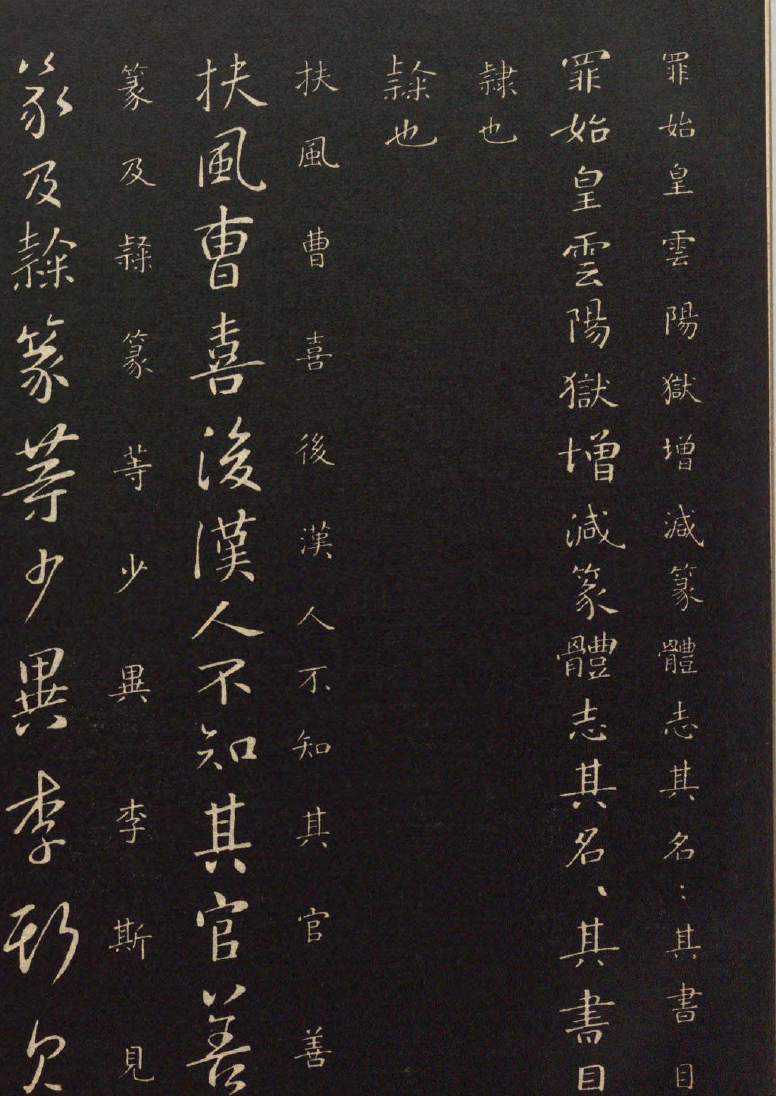 罪始皇雲陽獄增減篆體志其名〻其書曰
罪始皇雲陽獄增減篆體志其名〻其書曰
隸也
隸也
扶風曹喜後漢人不知其官善
扶風曹喜後漢人不知其官善
篆及隸篆等少異李斯見
篆及隸篆等少異李斯見